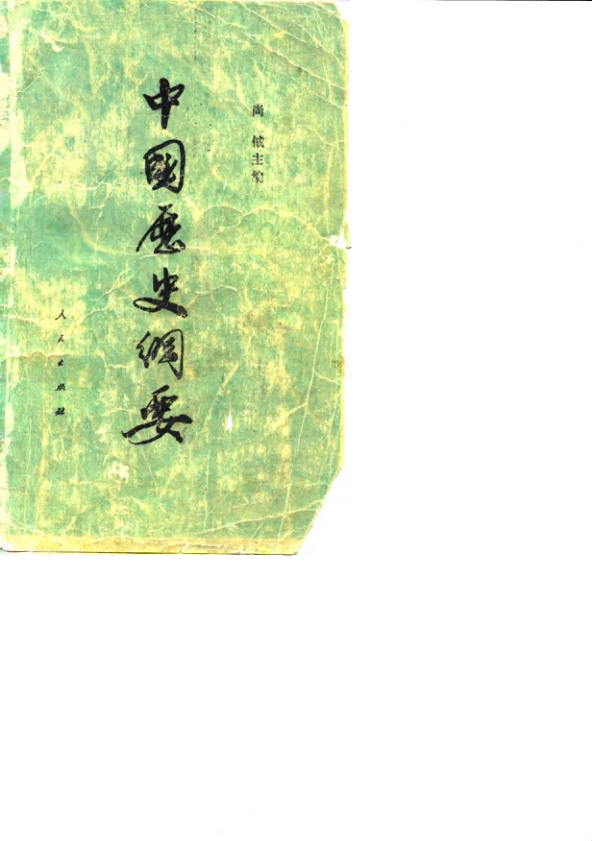 尚鉞主編
中國歷史綱要
人民出版社